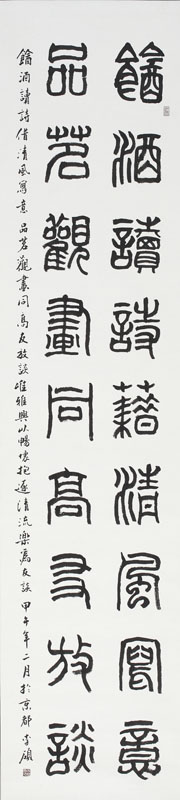 觴酒讀詩藉清風寫意
品茗觀畫同高友放談
觴酒讀詩借清風寫意品茗觀畫同高友放談唯雅興以暢懷抱邀清流樂為友談甲午年二月於京都